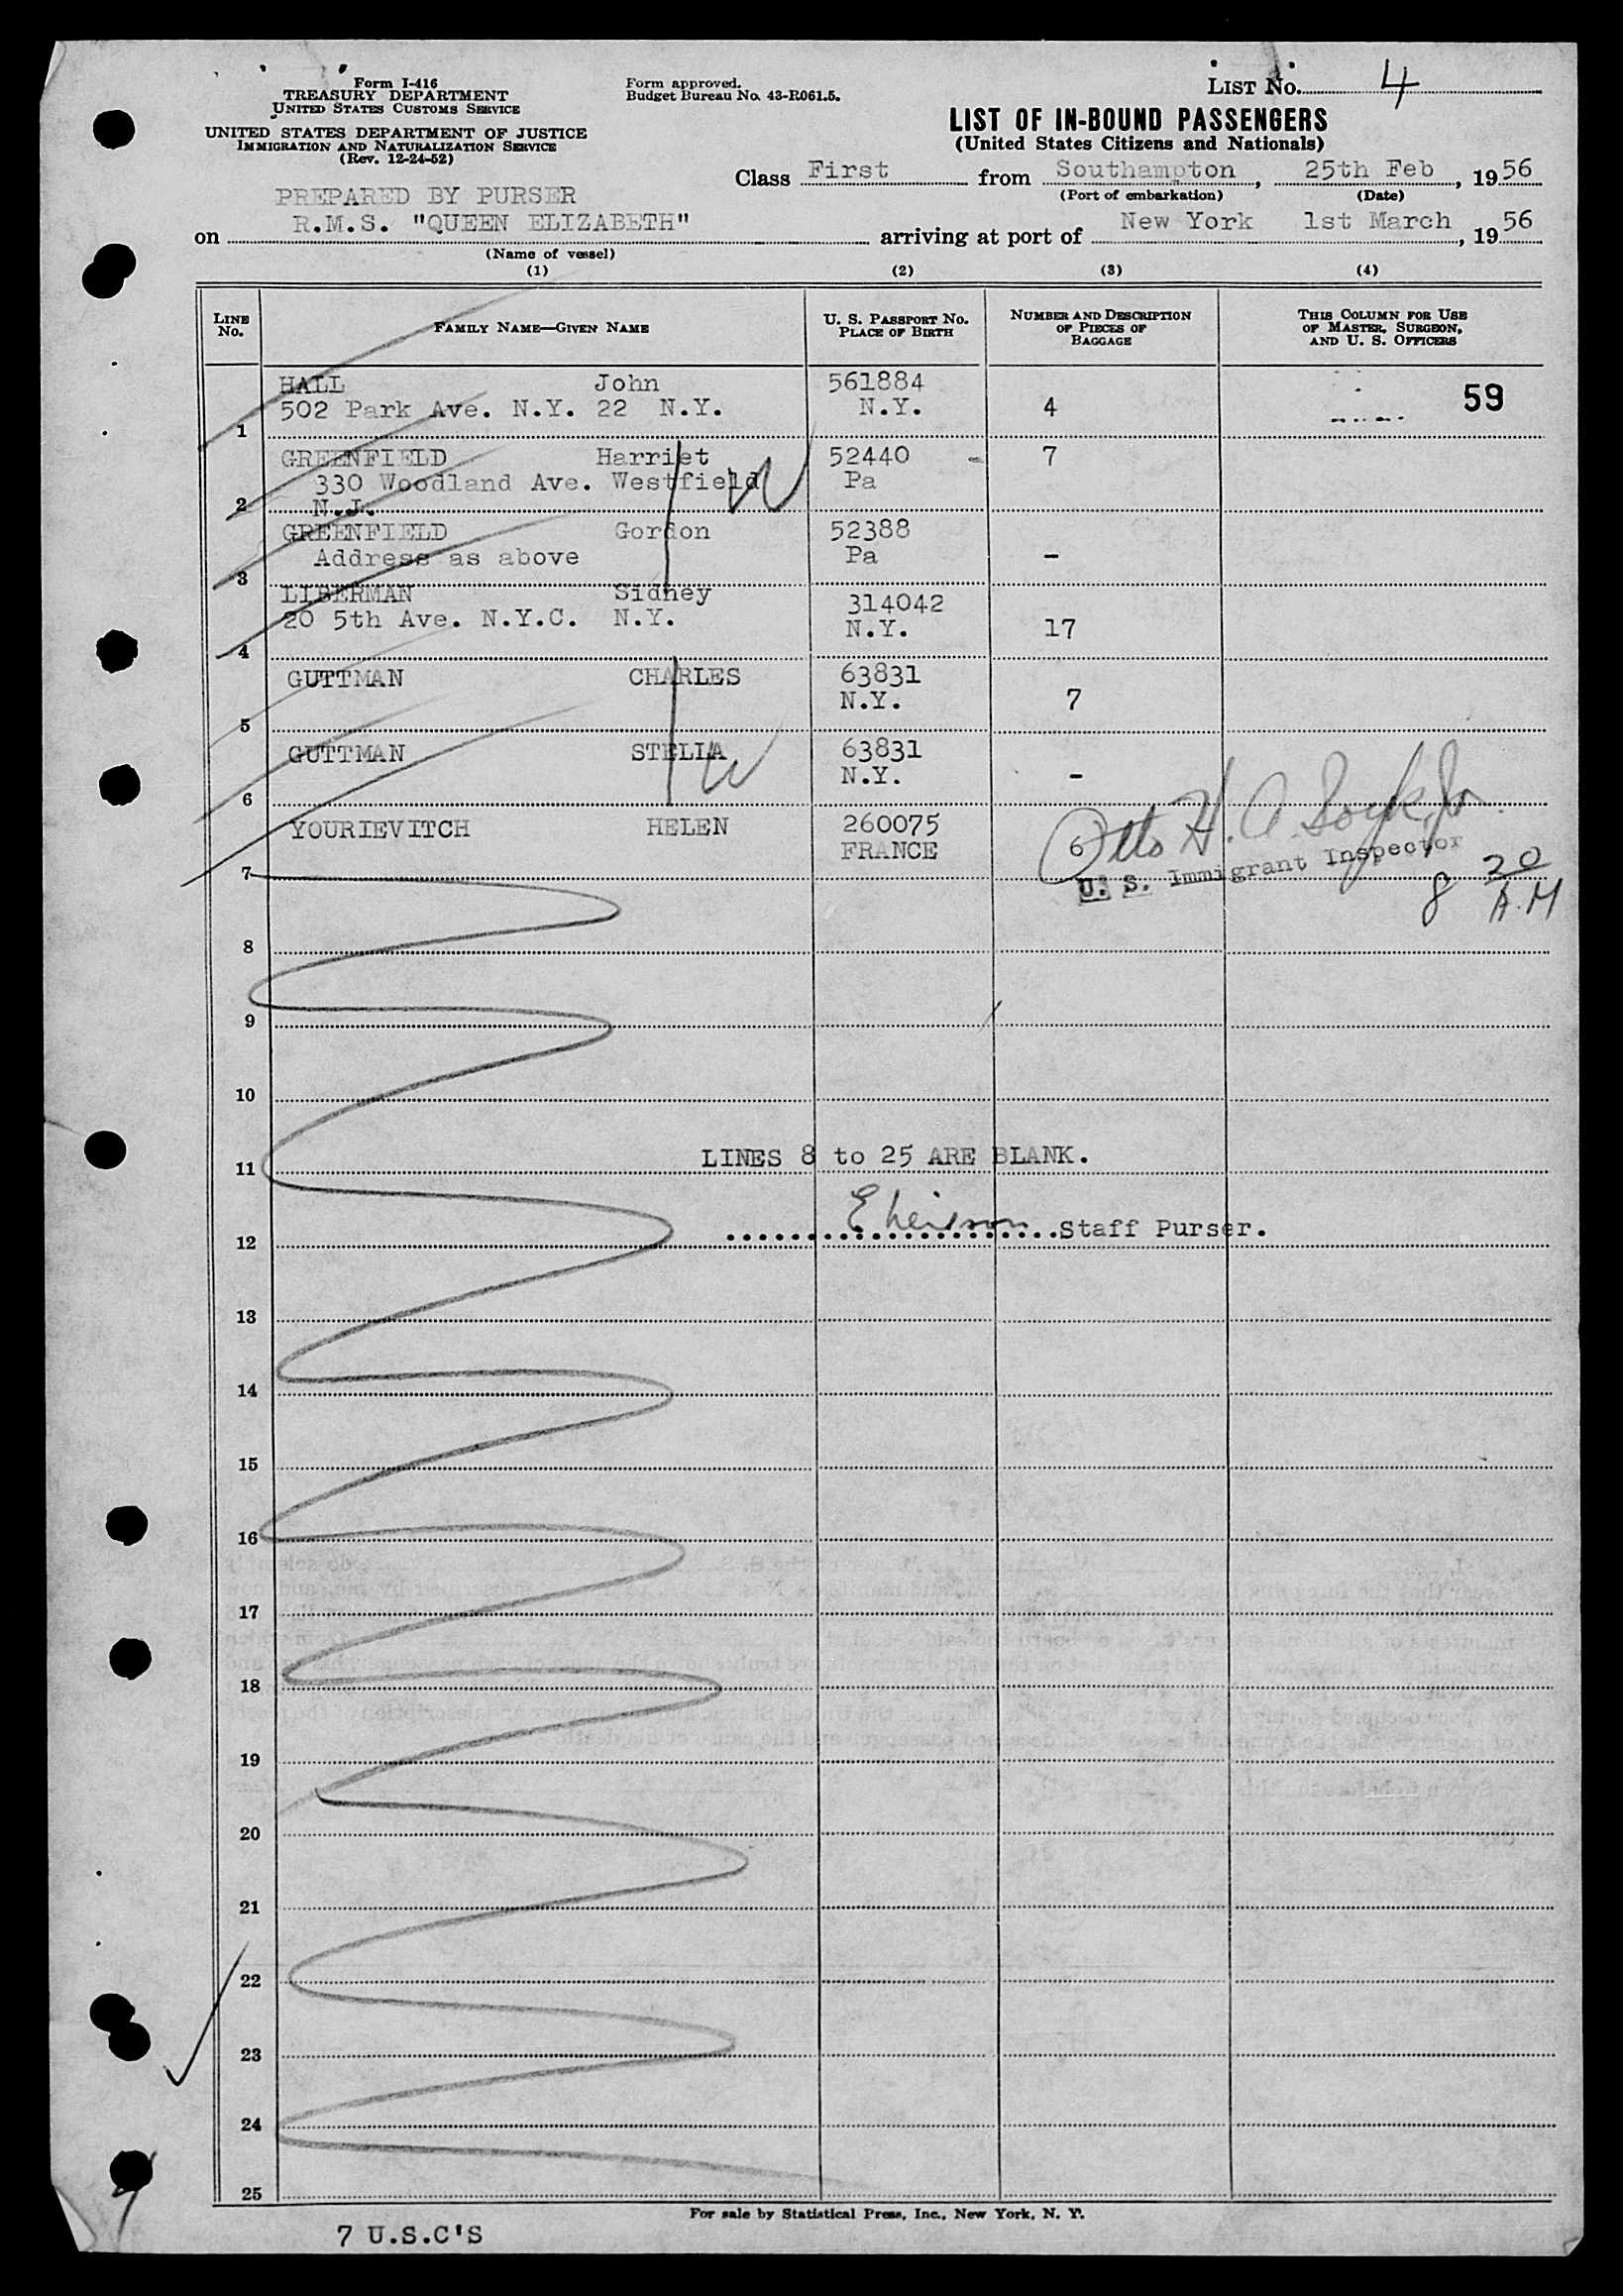 Form I-416
TREASURY DEPARTMENT
UNITED STATES CUSTOMS SERVICE
UNITED STATES DEPARTMENT OF JUSTICE
IMMIGRATION AND NATURALIZATION SERVICE
(Rev. 12-24-52)
Form approved.
Budget Bureau No. 43-R061.5.
LIST No. 4
LIST OF IN-BOUND PASSENGERS
(United States Citizens and Nationals)
Class First from Southampton, 25th Feb, 1956
(Port of embarkation) (Date)
PREPARED BY PURSER
on R.M.S. "QUEEN ELIZABETH" arriving at port of New York 1st March, 1956
(Name of vessel)
(1) (2) (3) (4)
LINE No. FAMILY NAME—GIVEN NAME U. S. PASSPORT No. PLACE OF BIRTH NUMBER AND DESCRIPTION OF PIECES OF BAGGAGE THIS COLUMN FOR USE OF MASTER, SURGEON, AND U. S. OFFICERS
HALL John 561884
502 Park Ave. N.Y. 22 N.Y. N.Y. 4 59
1
GREENFIELD Harriet 52440 - 7
330 Woodland Ave. Westfield Pa
2 N.J.
W
GREENFIELD Gordon 52388
Address as above Pa -
3
LIBERMAN Sidney 314042
20 5th Ave. N.Y.C. N.Y. N.Y. 17
4
GUTTMAN CHARLES 63831
N.Y. 7
5
GUTTMAN STELLA 63831
N.Y. -
6
W
YOURIEVITCH HELEN 260075
FRANCE 6
7
Otto H. A.
U. S. Immigrant Inspector
8 20 A.M
8
9
10
LINES 8 to 25 ARE BLANK.
11
Staff Purser.
12
13
14
15
16
17
18
19
20
21
22
23
24
25
For sale by Statistical Press, Inc., New York, N. Y.
7 U.S.C'S